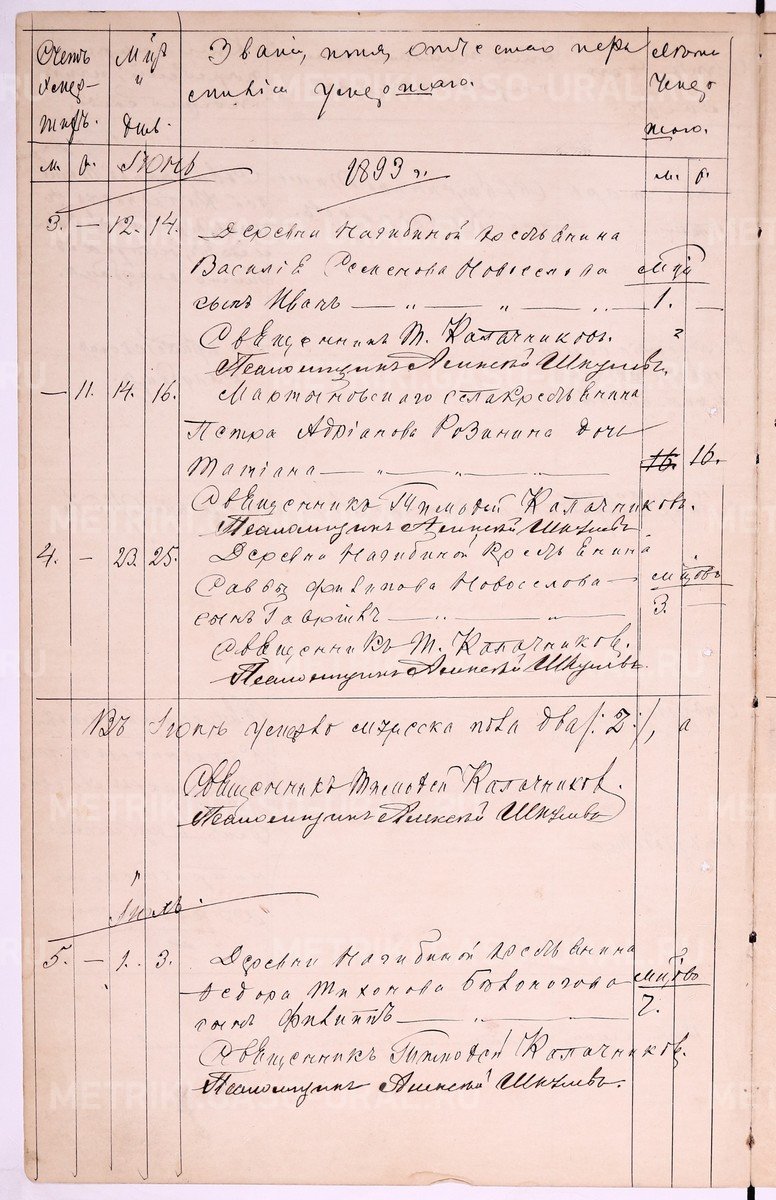 Счетъ
умер-
шихъ.
Мѣс.
и
день.
Званіе, имя, отчество и
фамилія умершаго.
Лѣта
умер
шаго.
м. ж. Іюнь 1893 г. м. ж.
3. — 12. 14. Деревни Нагибиной крестьянина
Василія Семенова Новоселова
сынъ Иванъ — „ — „ — 1. —
Священникъ Т. Калачниковъ.
Псаломщикъ Алексѣй Шкулевъ.
— 11. 14. 16. Мартыновскаго села крестьянина
Петра Адріанова Розанина дочь
Татіана — „ — „ — 16. 16.
Священникъ Тимофей Калачниковъ.
Псаломщикъ Алексѣй Шкулевъ
4. — 23. 25. Деревни Нагибиной крестьянина
Саввы Филипова Новоселова —
сынъ Гавріилъ — „ — „ — 3. —
Священникъ Т. Калачников.
Псаломщикъ Алексѣй Шкулевъ.
Въ Іюнѣ умерло мужеска пола два /: 2 :/, а
Священникъ Тимофей Калачников.
Псаломщикъ Алексѣй Шкулевъ
Іюль.
5. — 1. 3. Деревни Нагибиной крестьянина
Федора Тихонова Бѣлоногова мѣсяцовъ
сынъ Филиппъ — „ — „ — 7.
Священникъ Тимофей Калачников.
Псаломщикъ Алексѣй Шкулевъ.